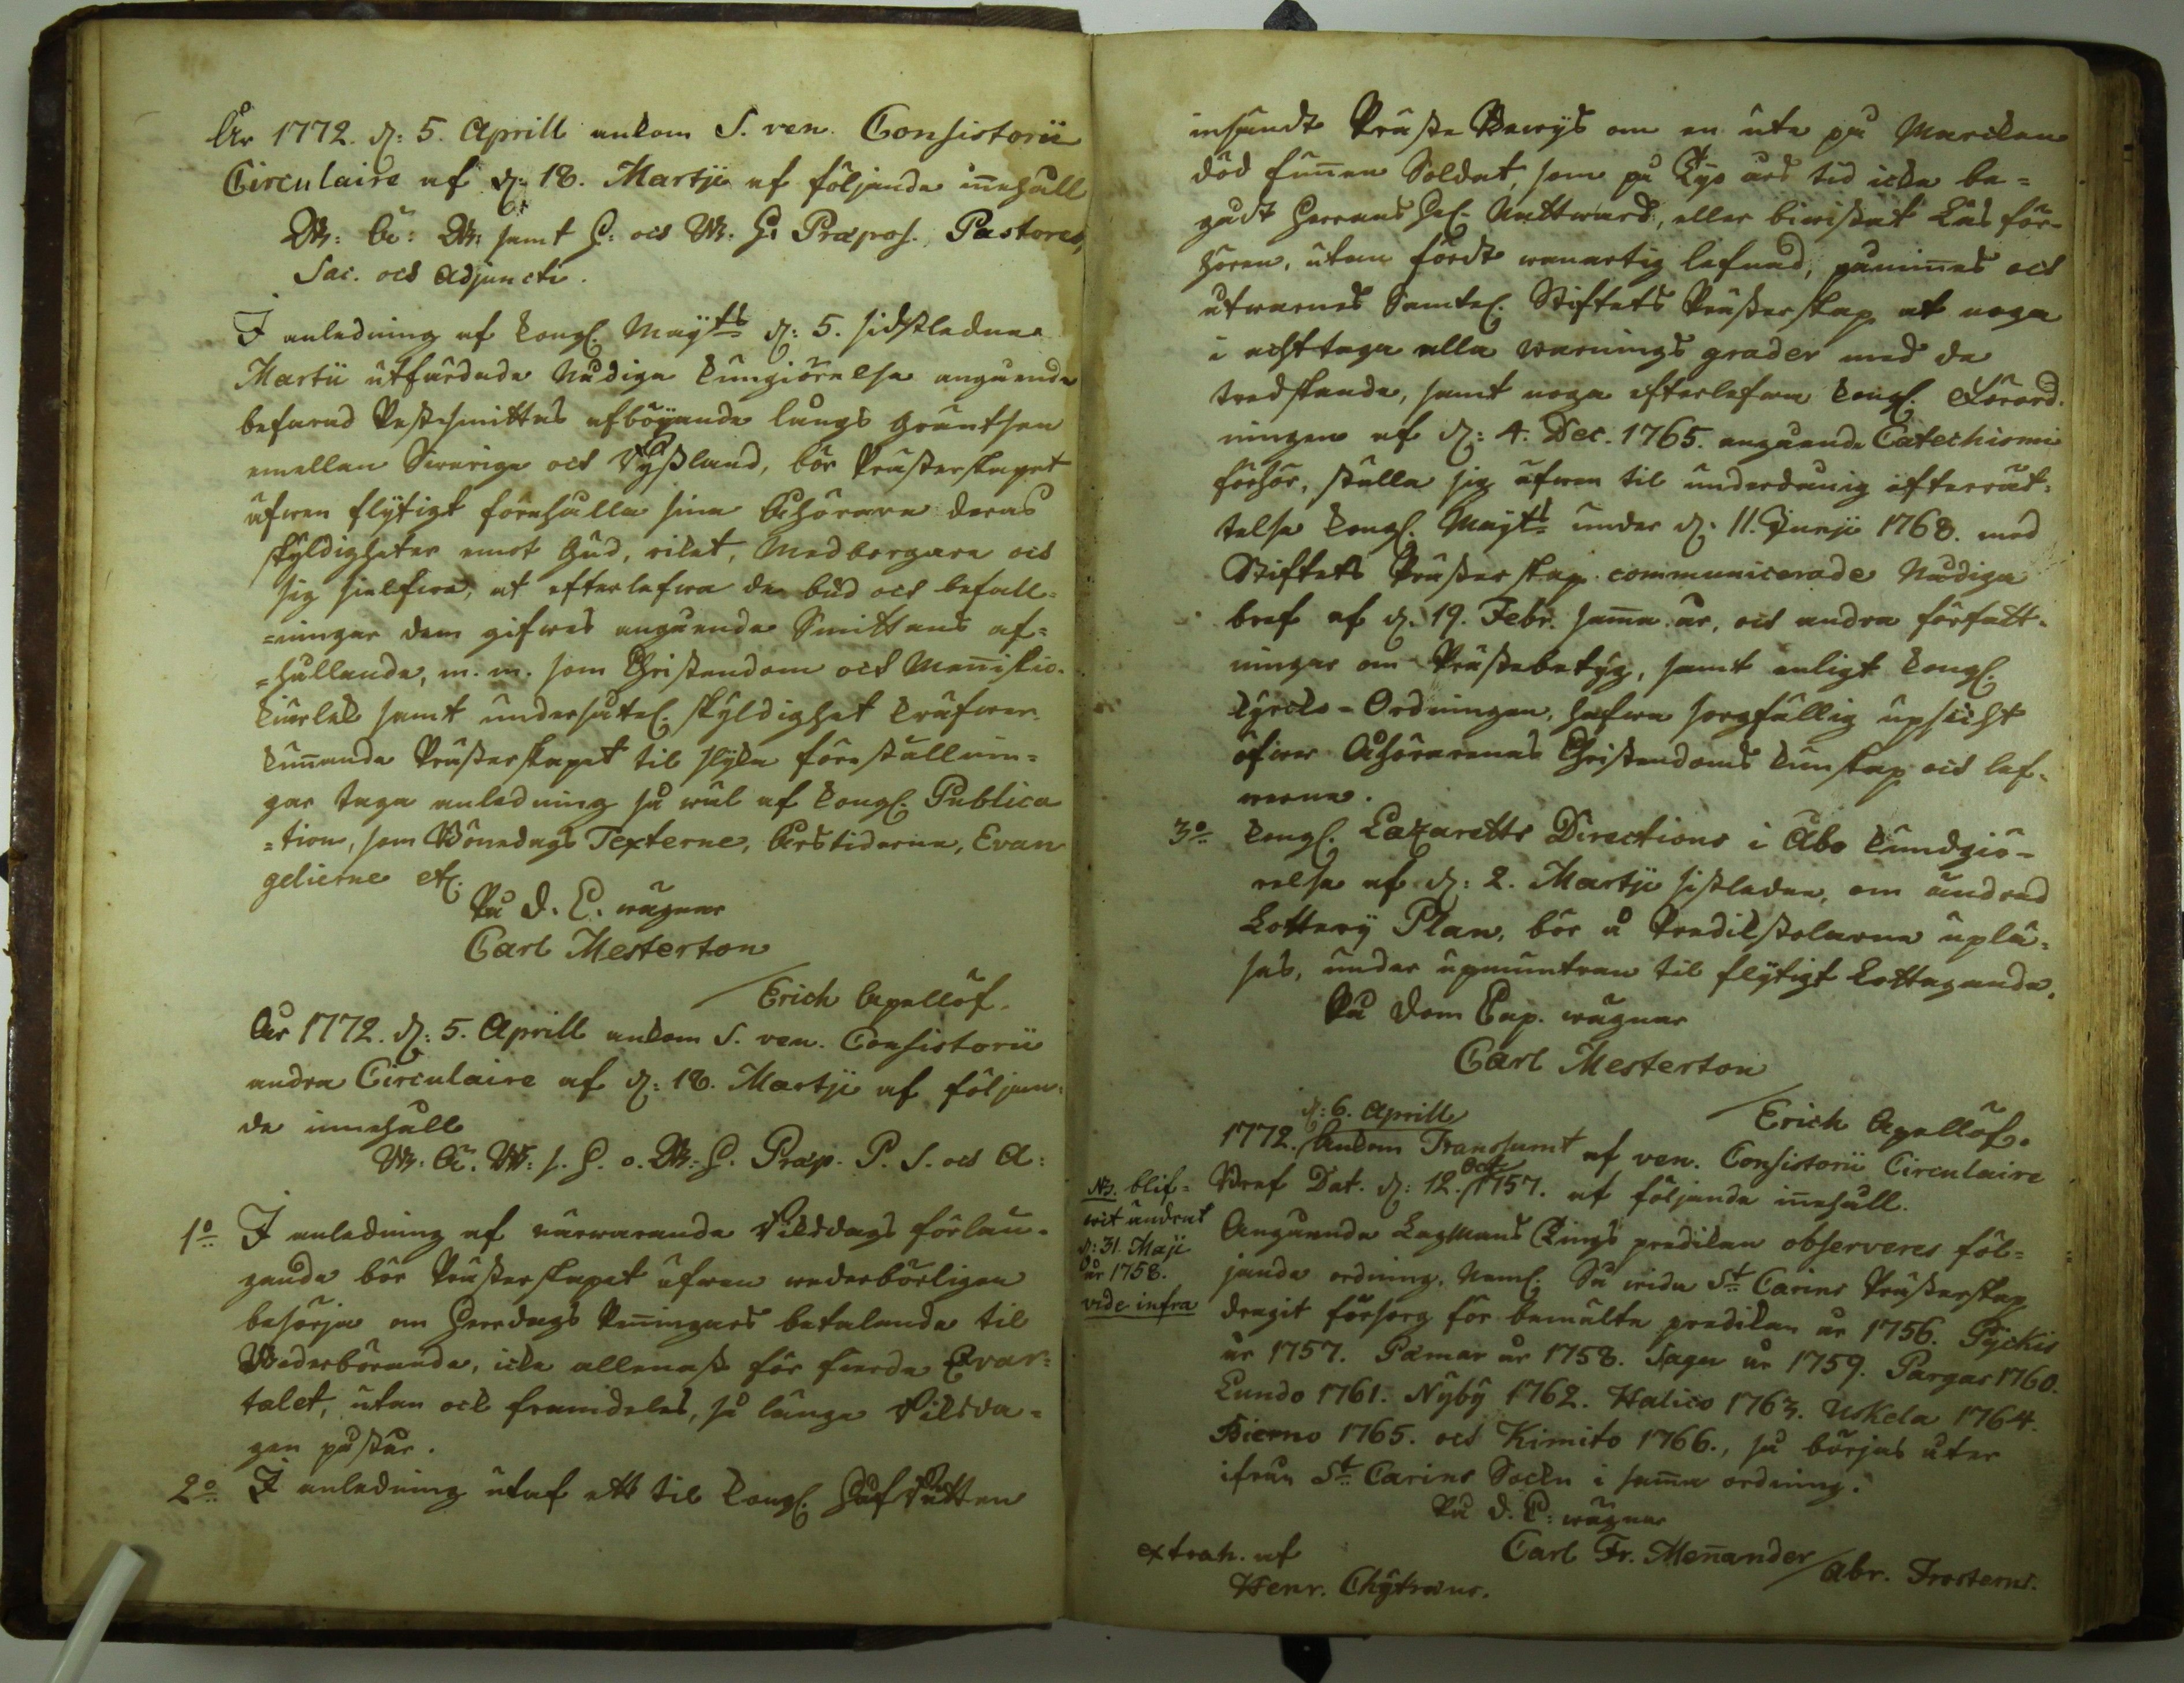 År 1772. d: 5. Aprill ankom S. ven. Consistorii
Circulaire af d: 18. Martji af följande inehåll
W: Ä: W: samt H: och W. H: Præpos. Pastores,
Sac. och Adjuncti.
I anledning af Kongl. Mayts d: 5. sidstledne
Martii utfärdade Nådiga Kungiörelse angående
befarad Pestsmittas afböijande längs gräntsen
emellan Swerige och Ryssland, bör Prästerskapet
äfwen flytigt förehålla sina Åhörare deras
skyldigheter emot Gud, riket, Medborgare och
sig sielfwe, at efterlefwa de bud och befall-
=ningar dem gifwes angående Smittans af=
=hållande, m. m. som Christendom och Meniskio-
kiärlek samt undersåtel. skyldighet kräfwer.
kunnande Prästerskapet til slyka föreställnin=
gar taga anledning så wäl af Kongl. Publica
=tion, som Bönedags Texterne, Årstiderna, Evan
gelierne etc.
På d. C. wägnar
Carl Mesterton
Erich Apellöf.
År 1772. d: 5. Aprill ankom S. ven. Consistorii
andra Circulaire af d: 18. Martji af följan=
de innehåll
W. Ä. W: s. H. o. W. H. Præp. P. S. och A:
1o I anledning af närwarande Riksdags förlän-
gande bör Prästerskapet äfwen wederbörligen
besörja om Herredags Peningars betalande til
Wederbörande, icke allenast för fierde Qvar=
talet, utan och framdeles, så länge Riksda=
gen påstår.
2o I anledning utaf ett til Kongl. HofRätten
insändt Präste Bewys om en ute på Marcken
död funnen Soldat, som på Tyo års tid icke be=
gådt Herrans Hel. Nattward, eller biwistat Läsför-
hören, utan fördt wanartig lefnad, påminnes och
utwarnes Samtel. Stiftets Prästerskap at noga
i achttaga alla warnings grader med de
tredskande, samt noga efterlefwa Kongl. Förord.
ningen af d: 4. Dec. 1765. angående Catechismi
förhör, ställa sig äfwen til underdånig efterrät=
telse Kongl. Mayts under d: 11. Junji 1768. med
Stiftets Prästerskap communicerade Nådiga
bref af d. 19. Febr. samma år, och andra författ-
ningar om Prästebetyg, samt enligt Kongl.
Kyrcko-Ordningen, hafwa sorgfällig upsicht
öfwer Åhörarenas Christendoms kunskap och lef-
werne.
3o Kongl. Lazaretts Directions i Åbo Kundgiö-
relse af d: 2. Martji sistledne, om ändrad
Lottery Plan, bör å Predikstolarna uplä=
sas, under upmuntran til flytigt Lottagande.
På Dom Cap. wägnar
Carl Mesterton
Erich Apellöf.
d: 6. Aprill
1772. Ankom Transsumt af ven. Consistorii Circulaire
Bref Dat. d: 12. Oct. 1757. af följande inehåll.
NB. blif=
wit ändrat
d: 31. Maji
år 1758.
vide infra
Angående LagMans Tings predikan observeres föl=
jande ordning. Neml. Så wida St Carins Prästerskap
dragit försorg för bemälte predikan år 1756. Pyckis
år 1757. Pämar år 1758. Sagu år 1759. Pargas 1760.
Lundo 1761. Nyby 1762. Halico 1763. Uskela 1764.
Bierno 1765. och Kimito 1766., så börjas åter
ifrån St Carins Sockn i samma ordning.
På d. C: wägnar
Carl Fr. Menander
Abr. Frosterus.
extrah. af
Henr. Chytræus.